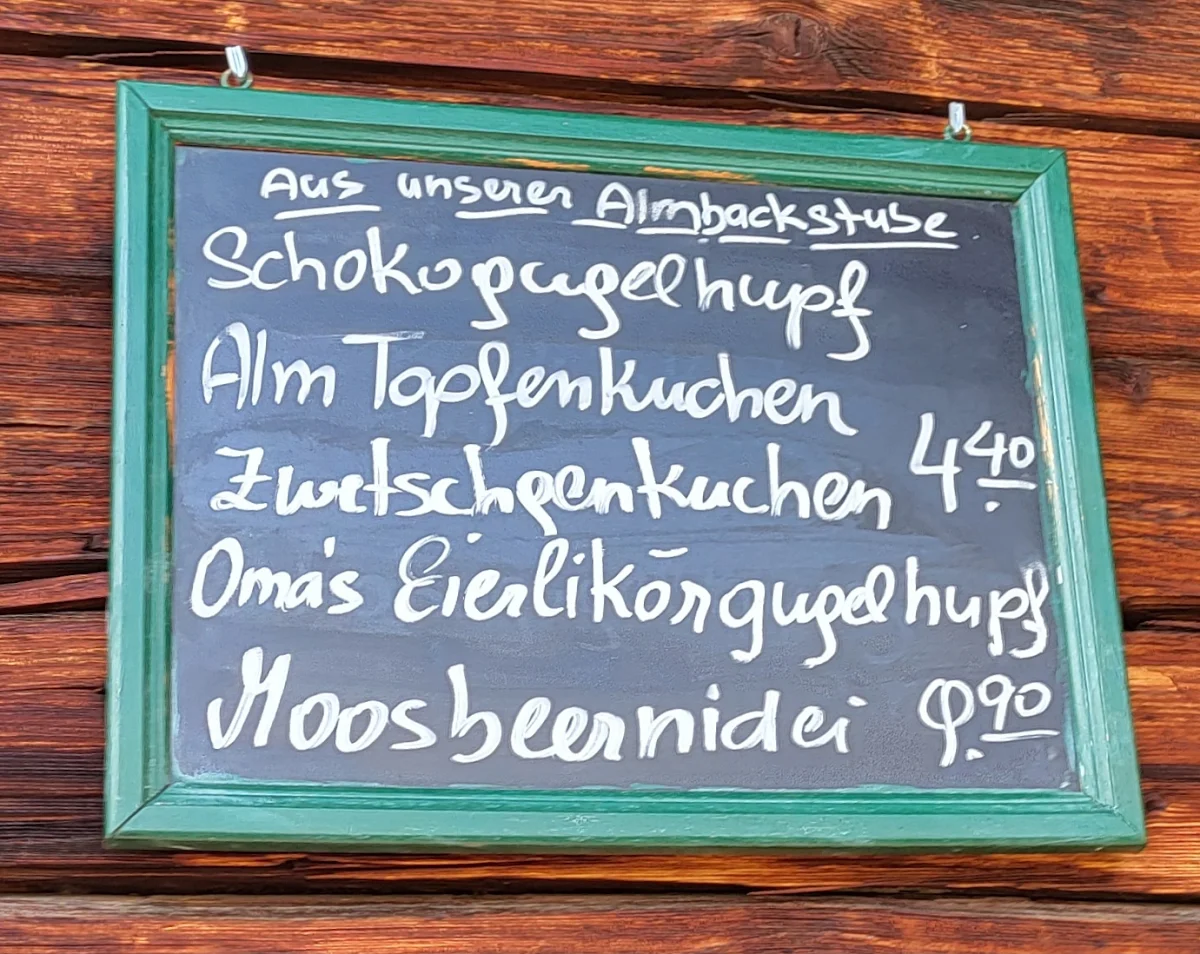 Aus unserer Almbackstube
Schokogugelhupf
Alm Topfenkuchen
Zwetschgenkuchen 4.40
Oma's Eierlikörgugelhupf
Moosbeernidei 9.90